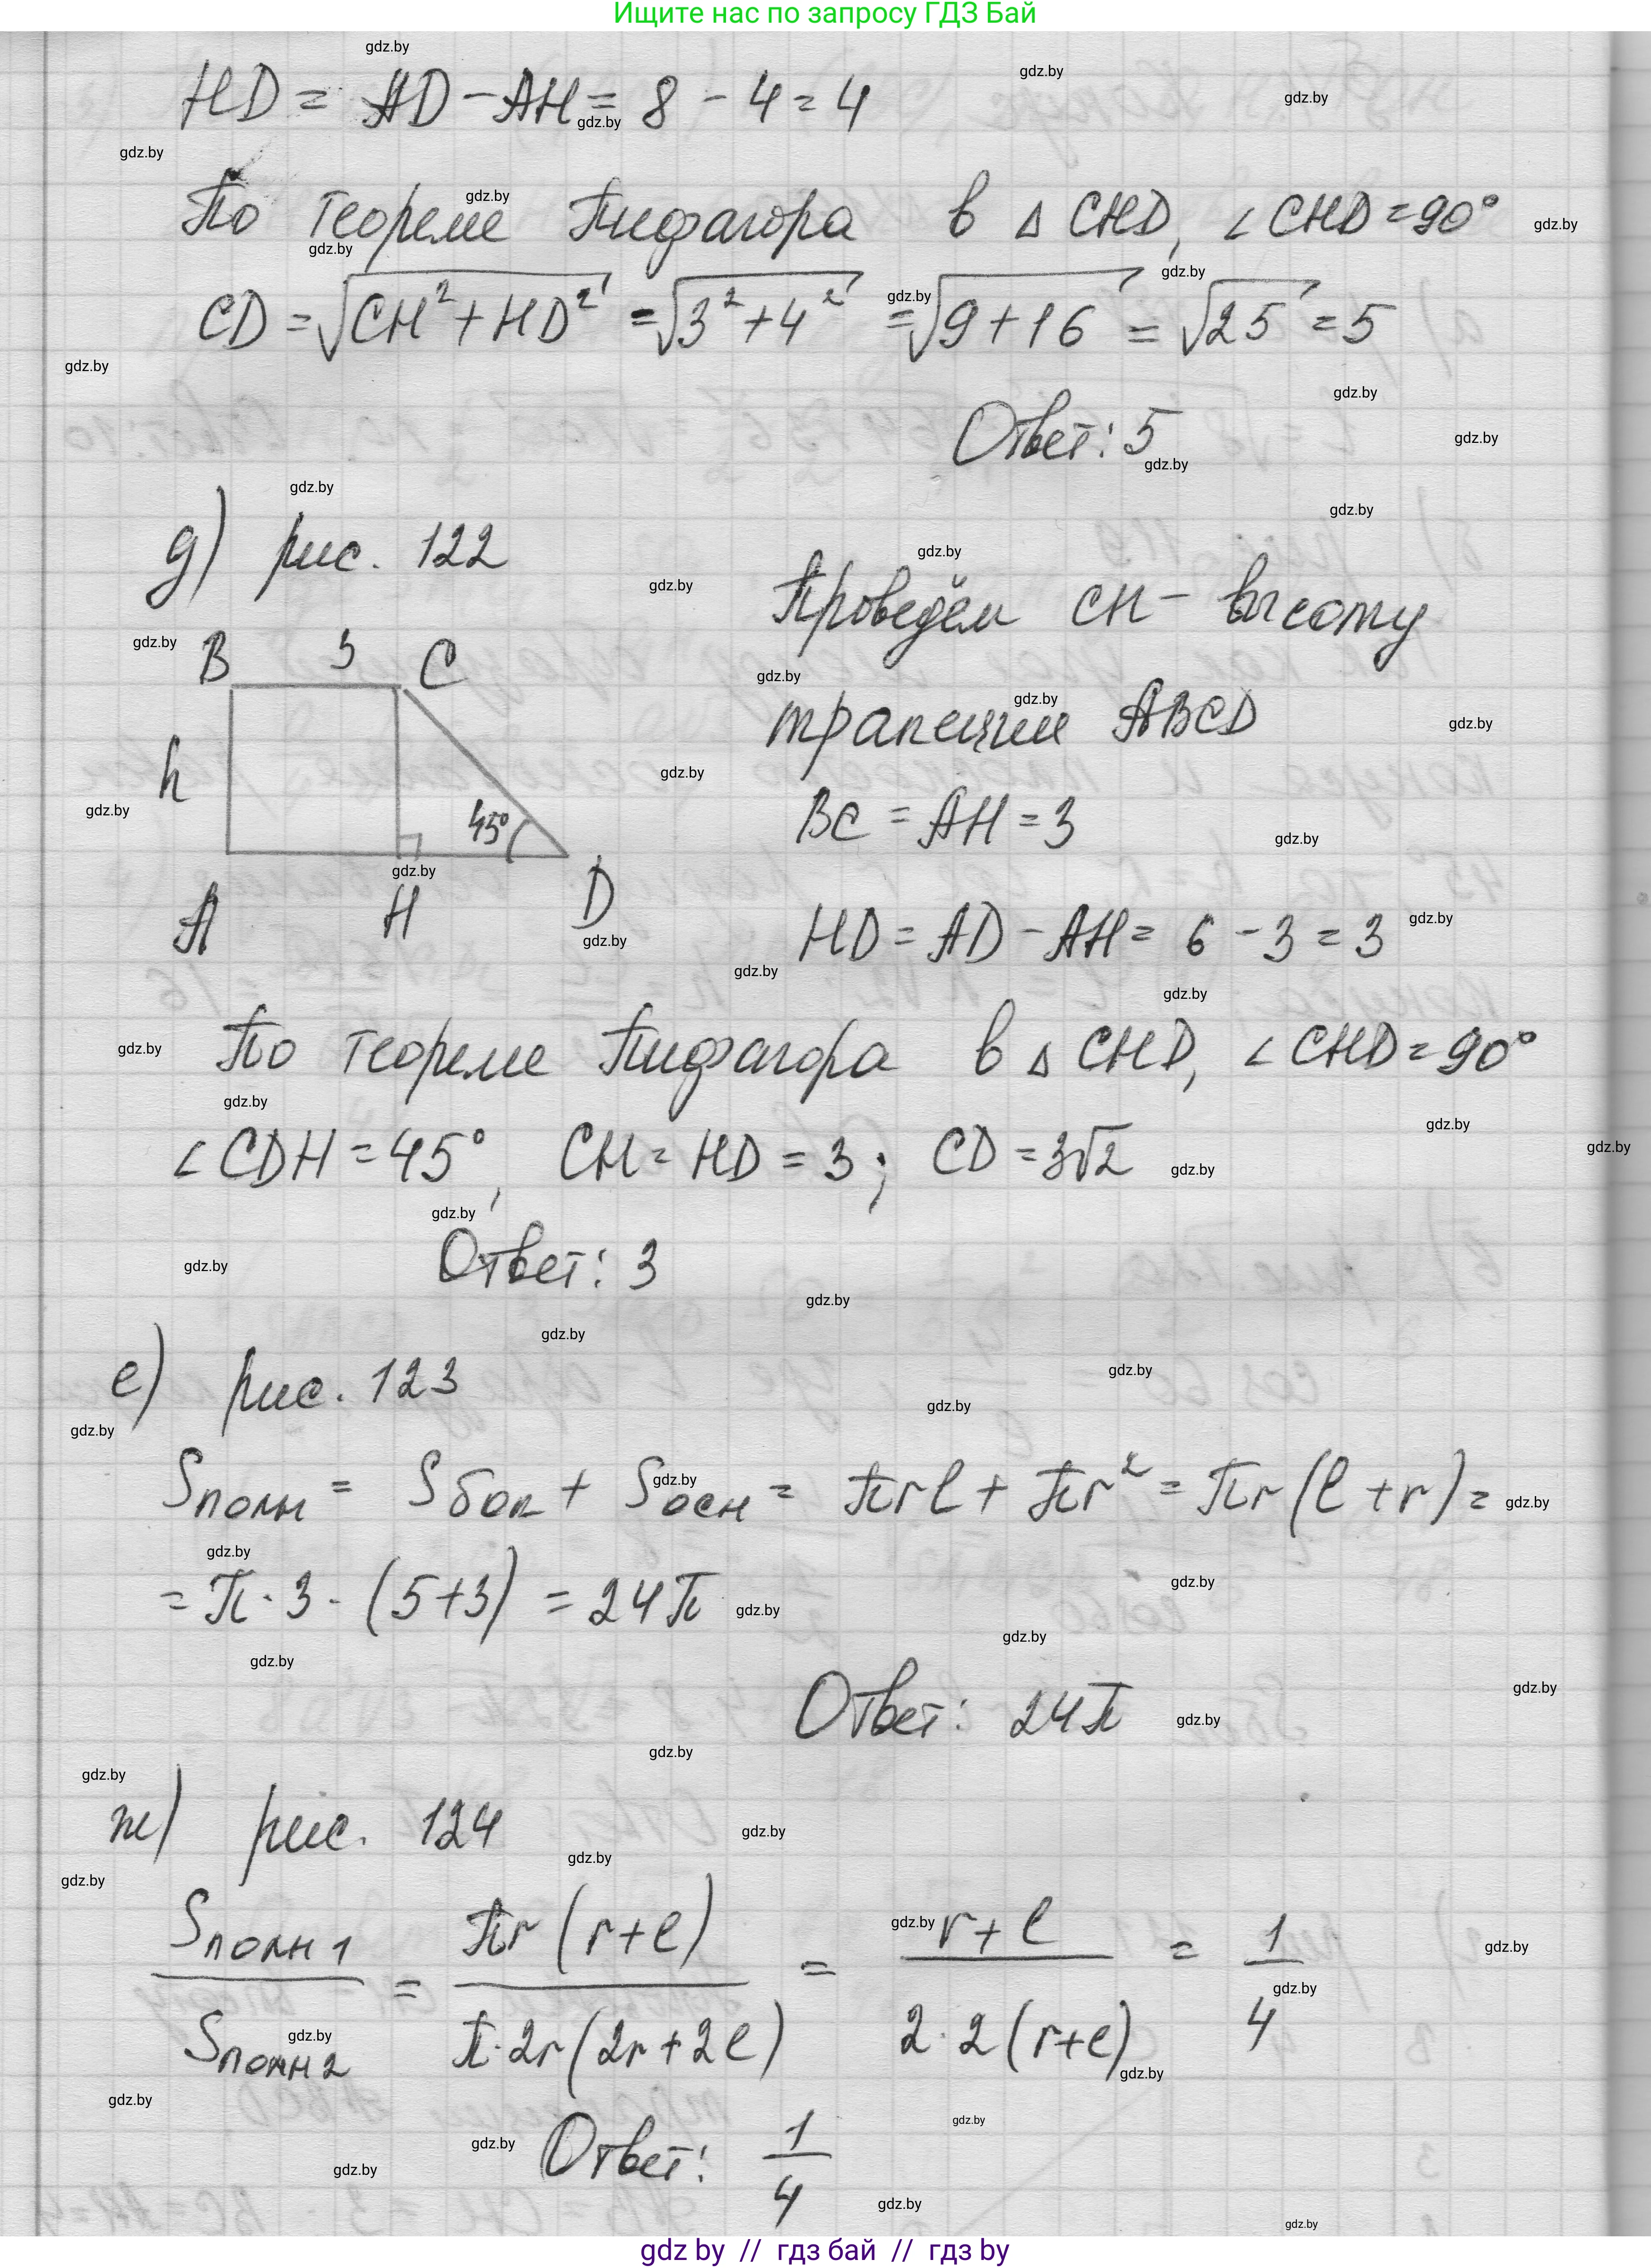 Ищите нас по запросу ГДЗ Бай
HD = AD - AH = 8 - 4 = 4
По теореме Пифагора в △ CHD, ∠ CHD = 90°
CD = √(CH² + HD²) = √(3² + 4²) = √(9 + 16) = √25 = 5
Ответ: 5
д) рис. 122
Проведём CH - высоту
трапеции ABCD
BC = AH = 3
HD = AD - AH = 6 - 3 = 3
B 3 C
h
45°
A H D
По теореме Пифагора в △ CHD, ∠ CHD = 90°
∠ CDH = 45°, CH = HD = 3; CD = 3√2
Ответ: 3
е) рис. 123
Sполн = Sбок + Sосн = πrl + πr² = πr(l + r) =
= π · 3 · (5+3) = 24π
Ответ: 24π
ж) рис. 124
Sполн1 / Sполн2 = πr(r+l) / π·2r(2r+2l) = r+l / 2·2(r+l) = 1/4
Ответ: 1/4
gdz by // гдз бай // гдз by